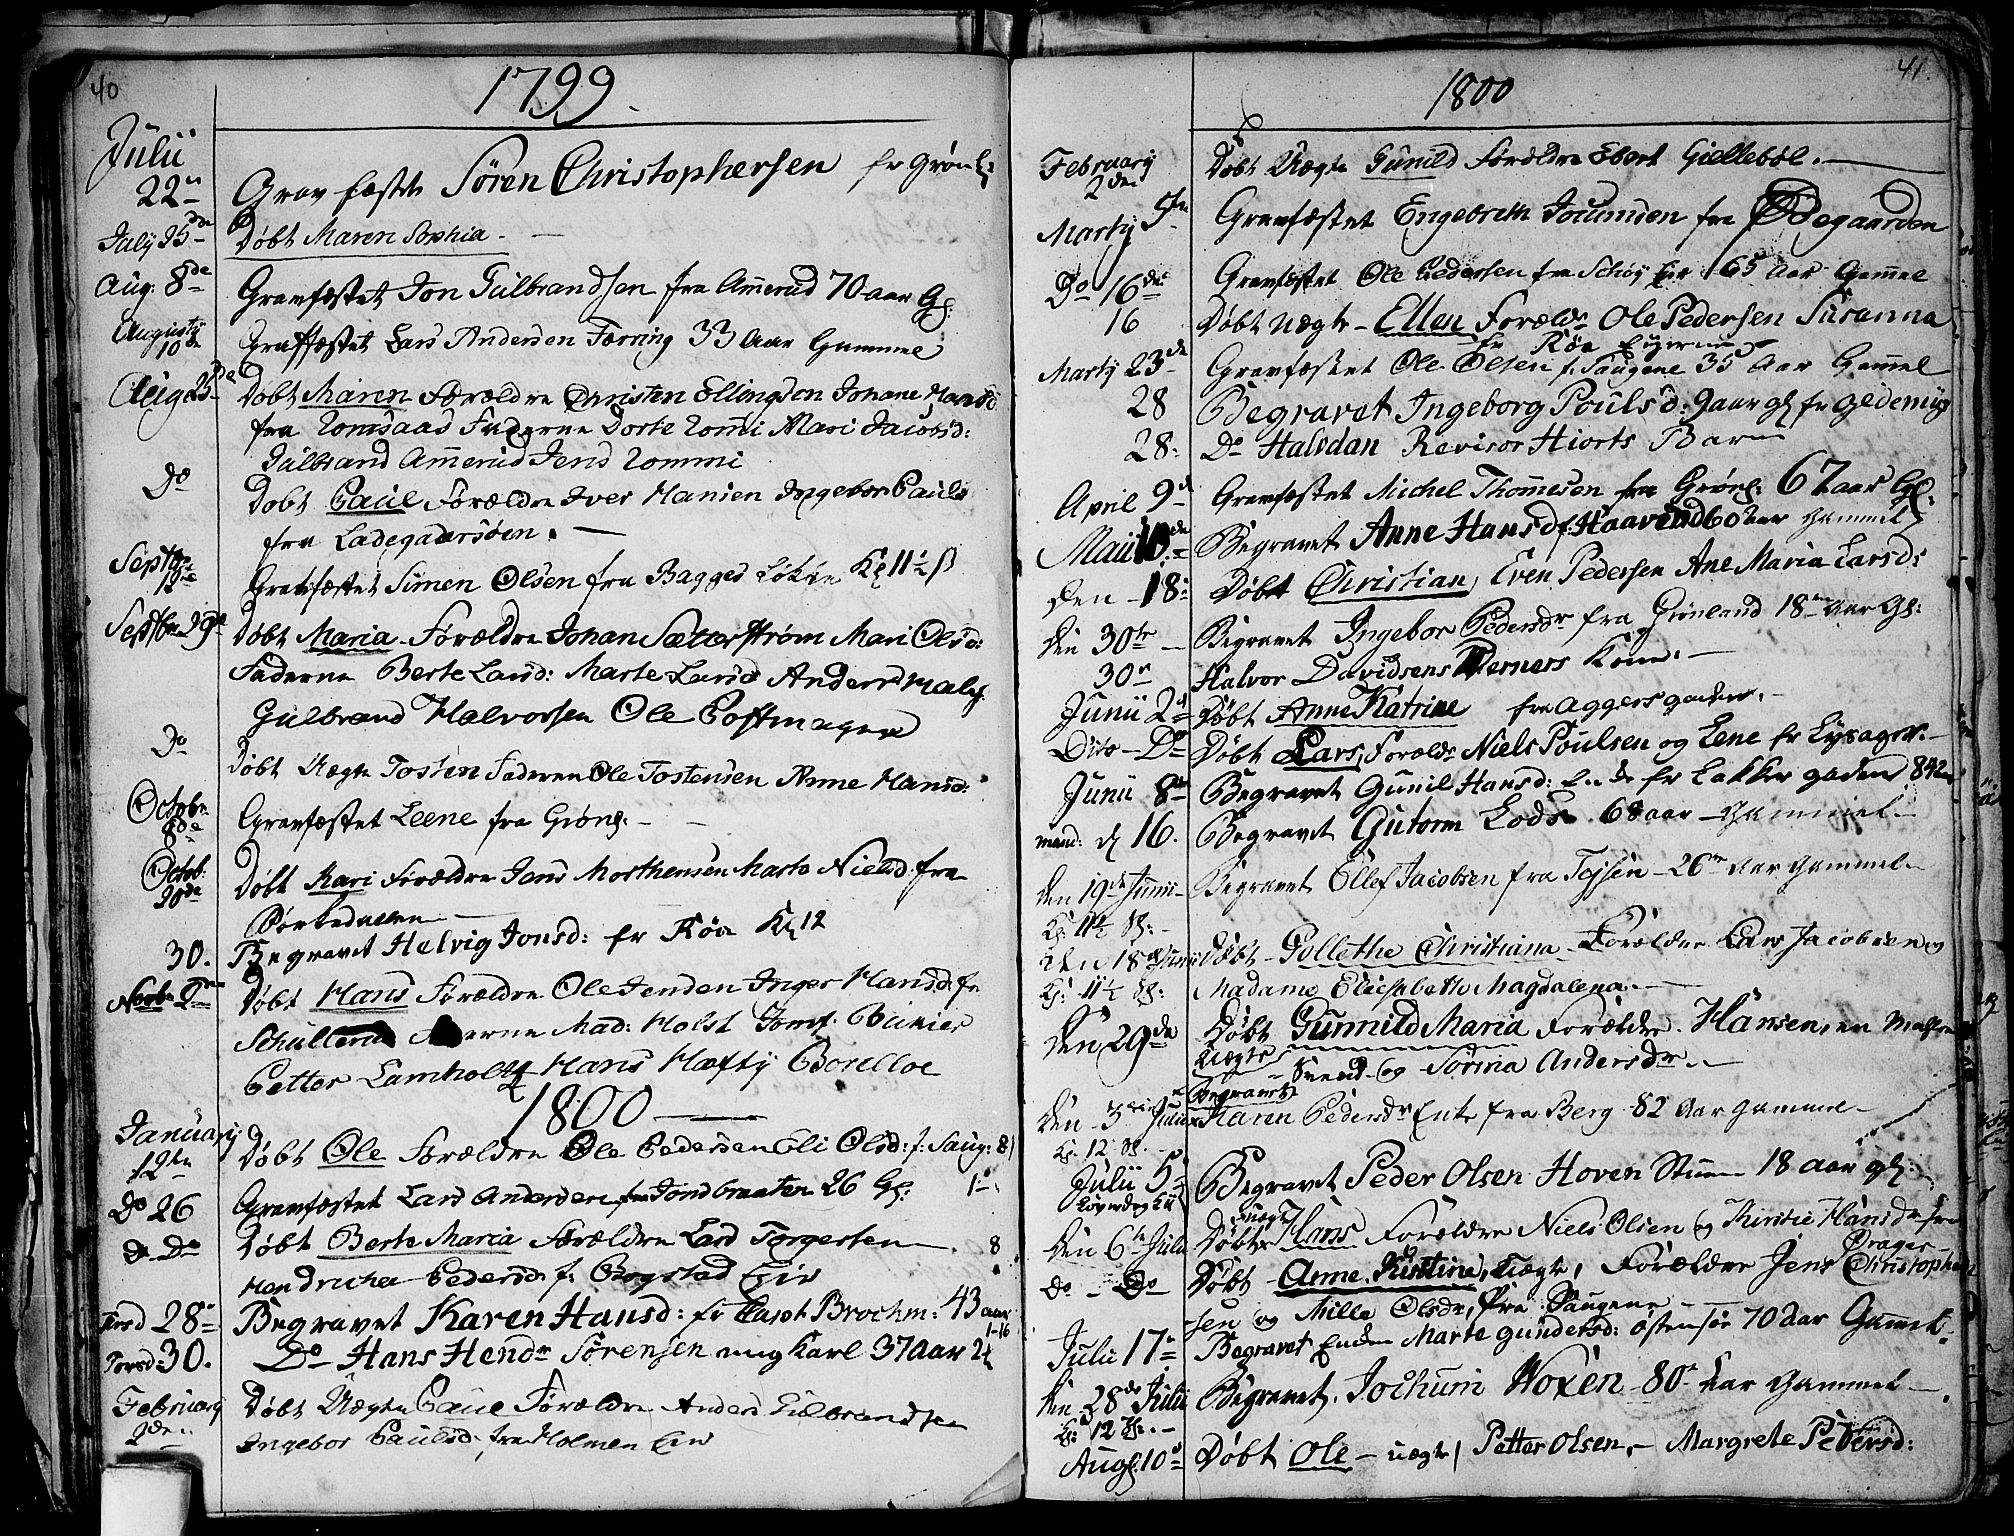 40
1799.
Julii
22n Gravfæstet Søren Christophersen fr Grønl:
July 25de Døbt Maren Sophia.
Aug: 8de Gravfæstet Jon Gulbrandsen fra Amerud 70 aar Gl:
Augusty 10de Graffæstet Lars Andersen Færring 33 Aar Gammel
Aug 25de Døbt Maren Forældre Christen Ellingsen Johane Hansd
fra Romsaas Faderne Dorte Rommi Mari Jacobsd:
Gulbrand Amerud Jens Rommi
Do Døbt Paul Forældre Iver Hansen Ingebor Pauls
fra Ladegaardsøen.
Septbr 12te Gravfæstet Simen Olsen fra Bagges Løkke Kl 11½ s
Septbr 29de Døbt Maria Forældre Johan Sætterstrøm Mari Olsd:
Faderne Berte Land: Marte Larsd Anders
Gulbrand Halvorsen Ole Postmager
Do Døbt Uægte Tosten Faderen Ole Tostensen Anne Hansd:
Octobr 8de Gravfæstet Leene fra Grønl:
Octob: 20de Døbt Kari Forældre Jens Morthensen Marte Nielsd fra
Sørkedalen
30. Begravet Helvig Jonsd: fr Røa Kl 12
Novbr 2den Døbt Hans Forældre Ole Jensen Inger Hansd: fr
Schullerud Faderne Mad: Holst Jomf:
Petter Lamholtz Hans Hæfty Borelloe
1800
January 12te Døbt Ole Forældre Ole Pedersen Eli Olsd: f: Saug: 8
Do 26 Gravfæstet Lars Andersen fra Jondbraaten 26 Gl: 1
Do Do Døbt Berte Maria Forældre Lars Torgersen 8
Hendriche Pedersd: f: Bogstad Eie
Tirsd 28 Begravet Karen Hansd: fr Brochm: 43 aar
1-16
Torsd: 30. Do Hans Hendr Sørensen ung Karl 37 Aar
February 2den Døbt Uægte Paul Forældre Anders Gulbrandsen
Ingebor Paulsd: fra Holmen Eie
41.
1800
February 2den Døbt Uægte Gunild Forældre Ebert Giellebøl.
Marty 5te Gravfæstet Engebreth Jocumsen fra Ødegaarden
Do 16de Gravfæstet Ole Pedersen fra Schøy Eie 65 Aar Gamel
16 Døbt Uægte Ellen Foræld. Ole Pedersen Susanna
fr Røa
Marty 23de Gravfæstet Ole Olsen f. Saugene 35 Aar Gamel
28 Begravet Ingeborg Poulsd: 9 aar gl fr
28: Do Halvdan Revisor Hiorts Barn
April 9d Gravfæstet Michel Thomesen fra Grønl: 67 aar Gl.
Maii 10de Begravet Anne Hansd f: Haavend 60 Aar Gammel
Den 18: Døbt Christian, Even Pedersen Ane Maria Larsd:
Den 30te Begravet Ingebor Pedersdr fra Grønland 18 Aar Gl:
30n Halvor Davidsens Perners Kone.
Junii 2d Døbt Anne Katrine fra Aggersgaden.
Dito Do Døbt Lars, Forældr Niels Poulsen og Lene fr Lysager.
Junii 8de Begravet Gunil Hansd: fr Lakkegaden 84 2
mand: d 16. Begravet Gutorm Lods 68 aar Gammel
den 19de Junii Begravet Ellef Jacobsen fra Tøjsen 26 Aar Gammel
Kl: 11½ Sl:
den 18de Junii Døbt Pollethe Christiana Forældre Lars Jacobsen og
Kl: 11½ Sl: Madame Elisabeth Magdalena.
Den 29de Døbt Gunnild Maria Forældre Hansen, en
Uægte Svend og Sørina Andersdr.
Begravet
Den 3die Julii Karen Pedersdr Enke fra Berg 82 Aar Gammel
Kl. 12 Sl.
Julii 5 Begravet Peder Olsen Hoven 18 aar gl
Den 6te Julii Døbt uægte Hans Forældre Niels Olsen og Kirstie Hansdr fra
Drager
Do Do Døbt Anne Kistine, Uægte, Forældre Jens Christopher
sen og Mille Olsdr, fra Saugene
Julii 17 Begravet Enken Marte Gundersd: Østensiø 70 Aar Gamel.
den 28de Julii Begravet. Jochum Woxen 80 Aar Gammel
Kl: 12 Sl.
Augs: 10d Døbt Ole uægte Petter Olsen, Margrete Pedersd: